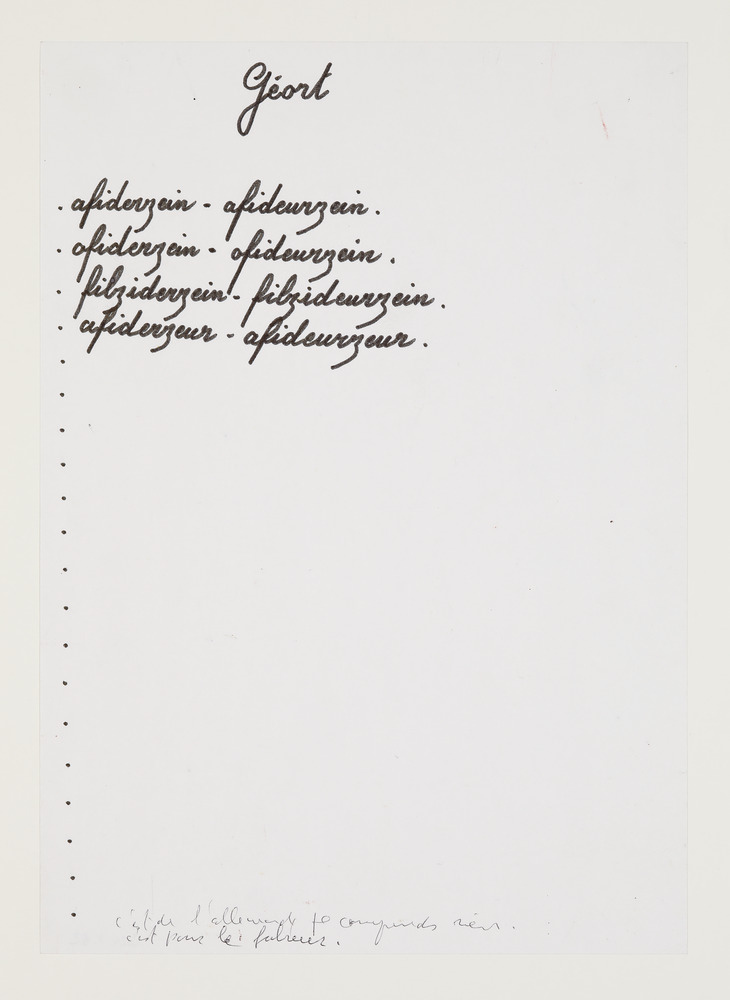 Géort
. afiderzein - afideurzein.
. ofiderzein - ofideurzein.
. filziderzein - filzideurzein.
. afiderzeur - afideurzeur.
c'est de l'allemand je comprends rien.
c'est pour les